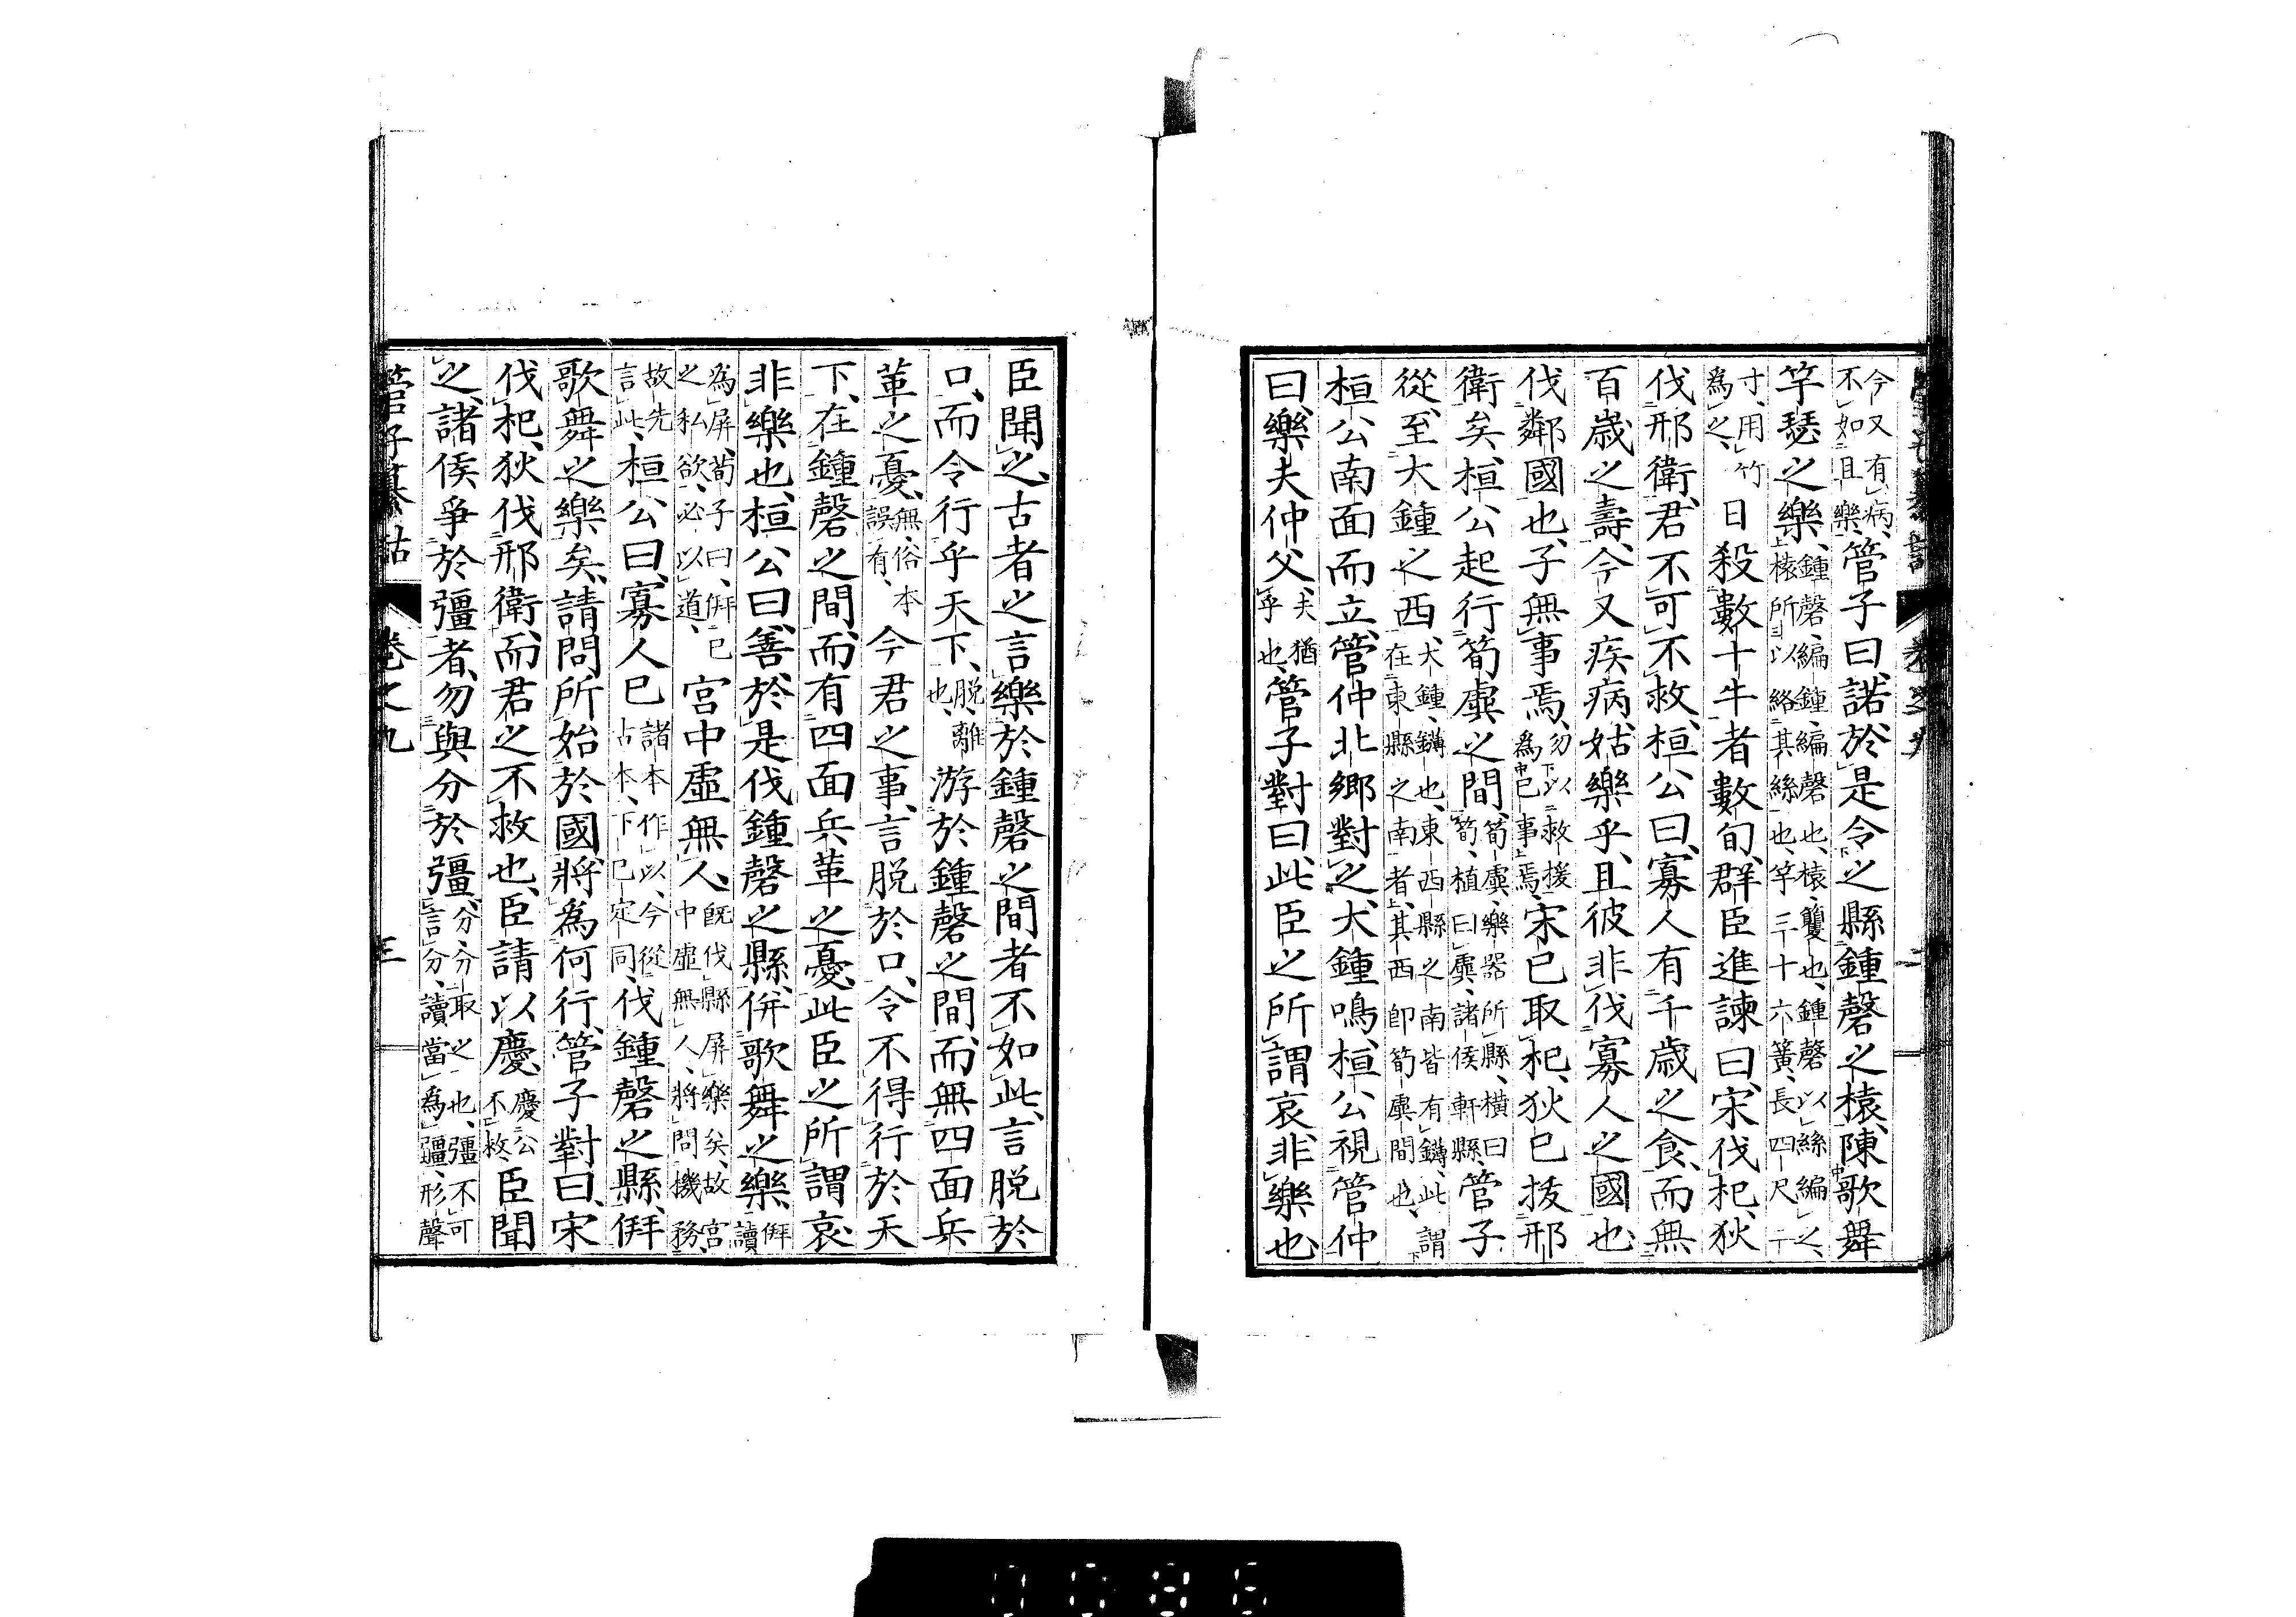 管子纂詁　卷之九
今又有病、不如且樂、管子曰、諾、於是令之縣鍾磬之榬、陳歌舞
竽瑟之樂、鍾磬、編鍾、編磬也、榬、籰也、鍾磬以絲編之、榬所以絡其絲也、竽三十六簧、長四尺二
寸、用竹為之、日殺數十牛者數旬、群臣進諫曰、宋伐杞、狄
伐邢衛、君不可不救、桓公曰、寡人有千歲之食、而無
百歲之壽、今又疾病、姑樂乎、且彼非伐寡人之國也、
伐鄰國也、子無事焉、勿以救援為已事焉、宋已取杞、狄已拔邢
衛矣、桓公起行筍虡之間、筍虡、樂器所縣、橫曰筍、植曰虡、諸侯軒縣、管子
從、至大鍾之西、大鍾、鏄也、東西縣之南皆有鏄、此謂在東縣之南者、其西即筍虡間也、
桓公南面而立、管仲北鄉對之、大鍾鳴、桓公視管仲
曰、樂夫仲父、夫猶乎也、管子對曰、此臣之所謂哀、非樂也、
臣聞之、古者之言樂於鍾磬之間者不如此、言脫於
口、而令行乎天下、脫、離也、游於鍾磬之間、而無四面兵
革之憂、無、俗本誤有、今君之事、言脫於口、令不得行於天
下、在鍾磬之間、而有四面兵革之憂、此臣之所謂哀、
非樂也、桓公曰、善、於是伐鍾磬之縣、併歌舞之樂、併讀
為屏、荀子曰、併己之私欲、必以道、宮中虛無人、既伐縣屏樂矣、故宮中虛無人、將問機務、
故先言此、桓公曰、寡人已諸本作以、今從古本、下已定同、伐鍾磬之縣、併
歌舞之樂矣、請問所始於國、將為何行、管子對曰、宋
伐杞、狄伐邢衛、而君之不救也、臣請以慶、慶公不救、臣聞
之、諸侯爭於彊者、勿與分於彊、分、分取之也、彊不可言分、讀當為疆、形聲
管子纂詁　卷之九　三